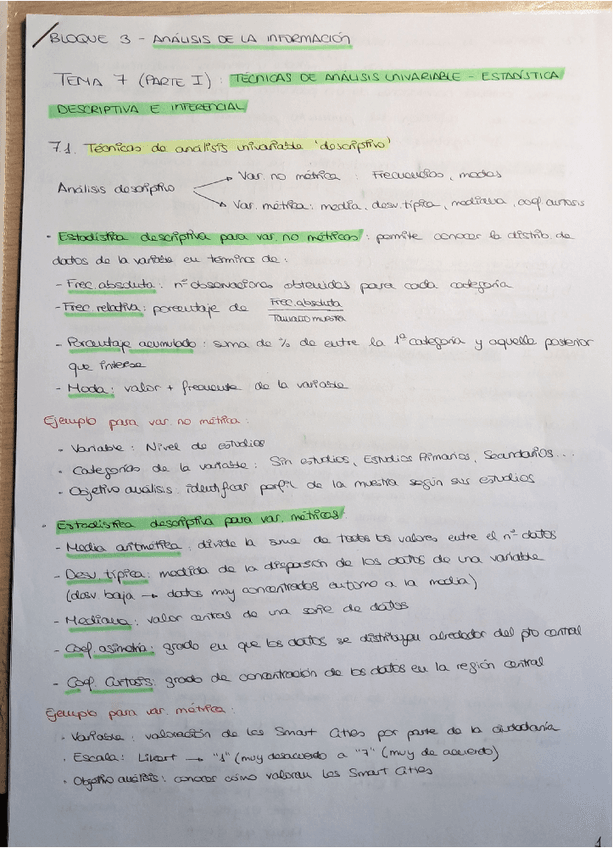 BLOQUE 3 - ANÁLISIS DE LA INFORMACIÓN
TEMA 7 (PARTE I): TÉCNICAS DE ANÁLISIS UNIVARIABLE - ESTADÍSTICA
DESCRIPTIVA E INFERENCIAL
7.1. Técnicas de análisis univariable 'descriptivo'
Var. no métrica : Frecuencias, modas
Análisis descriptivo
Var. métrica: media, desv. típica, mediana, coef curtosis
· Estadística descriptiva para var. no métricas: permite conocer la distrib. de
datos de la variable en términos de:
- Frec. absoluta: nº observaciones obtenidas para cada categoría
- Frec relativa: porcentaje de Frec. absoluta
Tamaño muestra
- Porcentaje acumulado: suma de % de entre la 1ª categoría y aquella posterior
que interese
- Moda: valor + frecuente de la variable
Ejemplo para var. no métrica:
- Variable: Nivel de estudios
- Categorías de la variable: Sin estudios, Estudios Primarios, Secundarios...
- Objetivo análisis: identificar perfil de la muestra según sus estudios
· Estadística descriptiva para var. métricas:
- Media aritmética: divide la suma de todos los valores entre el nº datos
- Desv típica: medida de la dispersión de los datos de una variable
(desv baja → datos muy concentrados entorno a la media)
- Mediana: valor central de una serie de datos
- Coef asimetría: grado en que los datos se distribuyen alrededor del pto central
- Coef. Curtosis: grado de concentración de los datos en la región central
Ejemplo para var. métrica:
· Variable: valoración de las Smart Cities por parte de la ciudadanía
· Escala: Likert → "1" (muy desacuerdo a "7" (muy de acuerdo)
· Objetivo análisis: conocer cómo valoran las Smart Cities
1